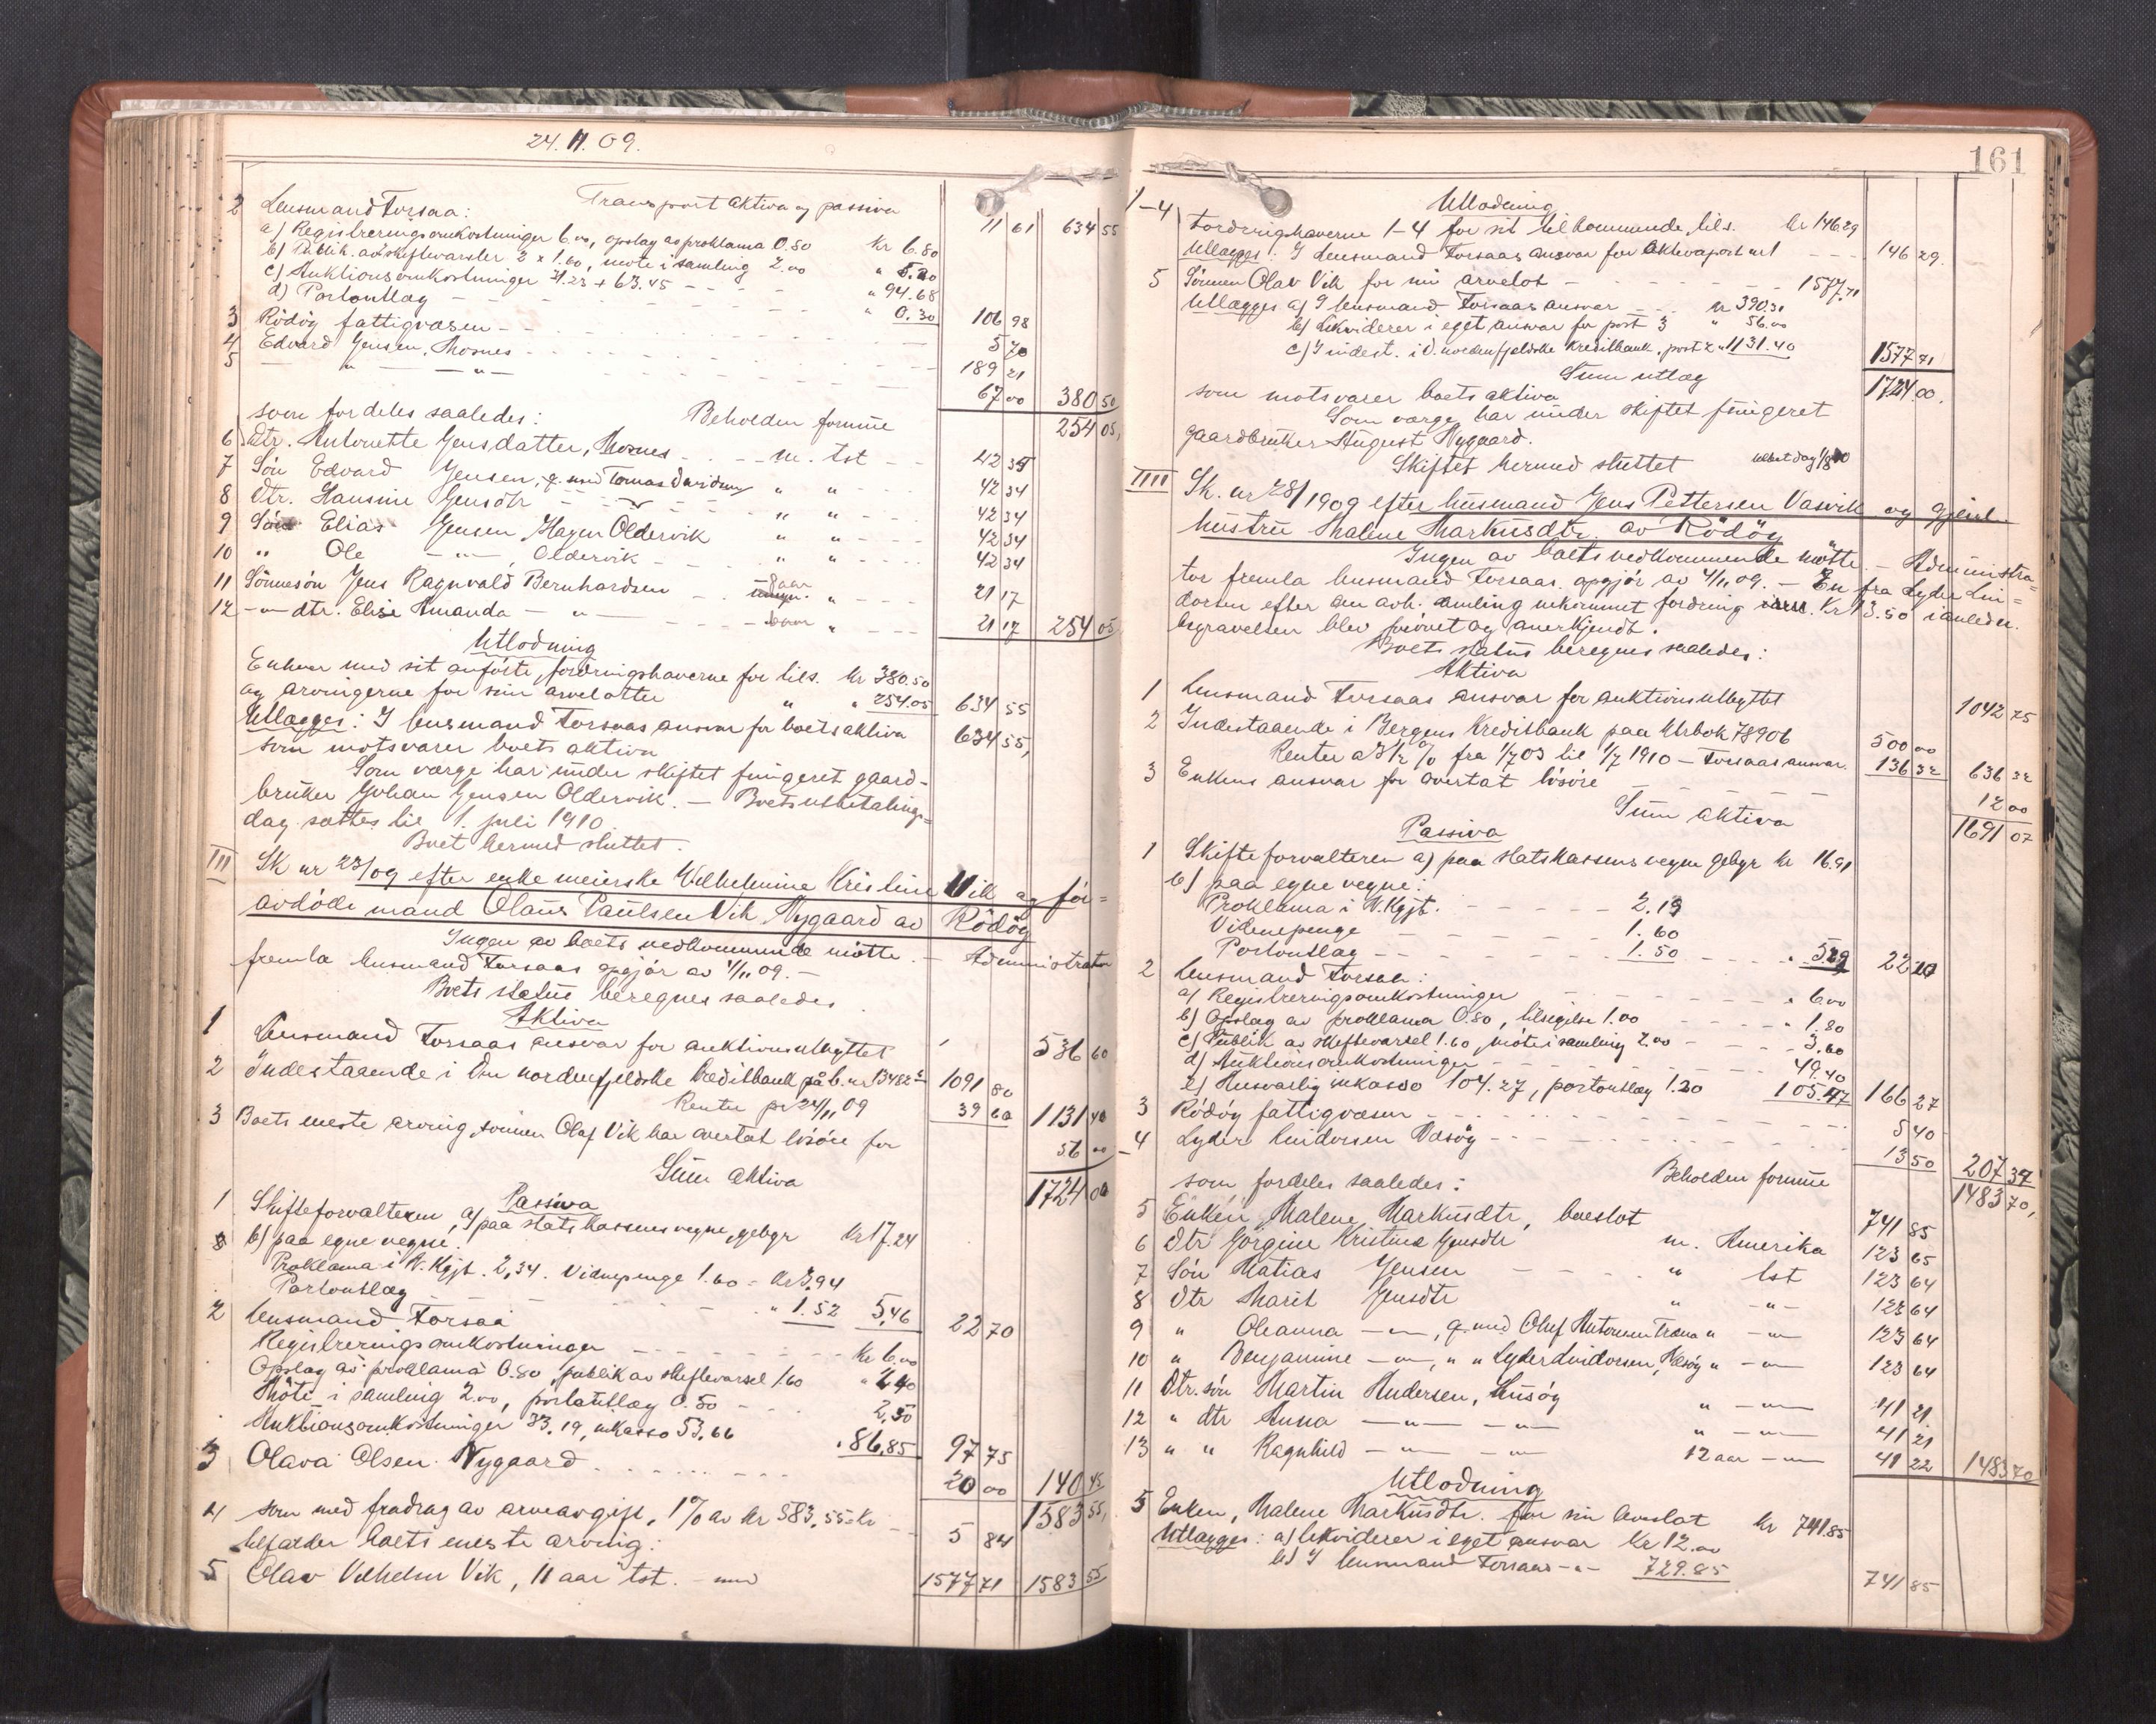 24.11.09.
Transport Aktiva og passiva 11 61 634 55
2 Lensmand Forsaa:
a) Registreringsomkostninger 6.00, opslag av proklama 0.80 Kr 6.80
b) Publik. av skiftevarsler 2 x 1.60, møte i samling 2.00 " 5.20
c) Auktionsomkostninger 31.23 + 63.45 - - " 94.68
d) Portoutlæg - - - " 0.30 106 98
3 Rödöy fattigvæsen - - - 5 70
4 Edvard Jensen, Mosnes - - - 189 21
5 - " - " - - - 67 00 380 50
Beholden formue 254 05
som fordeles saaledes:
6 Dtr. Antonette Jensdatter, Mosnes - - m. tst - - 42 35
7 Søn Edvard Jensen, " " 42 34
8 Dtr. Hansine Jensdtr g. med Tomas Davidsen " " 42 34
9 Søn Elias Jensen, Hagen Oldervik " " 42 34
10 " Ole - " - Oldervik " " 42 34
11 Sönnesön Jens Ragnvald Bernhardsen - - " 21 17
12 - " - dtr. Elise Amanda - " - " 21 17 254 05
Utlodning
Enhver med sit anförte, fordringshaverne for tils. Kr 380.50
og arvingerne for sin arvelotter " " 254.05 634 55
Utlægges: I lensmand Forsaas ansvar for boets aktiva 634 55,
som motsvarer boets aktiva
Som værge har under skiftet fungeret gaard-
bruker Johan Jensen Oldervik. - Boets utbetalings-
dag sættes til 1. juli 1910.
Boet hermed sluttet.
III Sk nr 23/09 efter enke meierske Vilhelmine Kristine Vik og för-
avdöde mand Olaus Paulsen Vik Nygaard av Rödöy
Ingen av boets vedkommende mötte. - Administrator
fremla lensmand Forsaas opgjör av 4/11 09. -
Boets status beregnes saaledes
Aktiva
1 Lensmand Forsaas ansvar for auktionsutbyttet 536 60
2 Indestaaende i Den nordenfjeldske kreditbank på b. nr 13482 1091 80
Renter pr 24/11 09 39 60 1131 40
3 Boets eneste arving, sönnen Olaf Vik har overtat lösöre for 56 00
Sum aktiva 1724 00
Passiva
1 Skifteforvalteren, a) paa statskassens vegne, gebyr Kr 17.24
b) paa egne vegne:
Proklama i N. Kgjt. 2,34. Vidnepenge 1.60 = Kr 3.94
Portoutlæg - - - " 1.52 5,46 22 70
2 Lensmand Forsaa
Registreringsomkostninger - - - Kr 6.00
Opslag av proklama 0.80, publik av skiftevarsel 1.60 " 2.40
Möte i samling 2.00, portoutlæg 0.50 - - 2,50
Auktionsomkostninger 33.19, inkasso 53.66 " 86,85 97 75
3 Olava Olsen Nygaard - - - 20 00 140 45
1583 55,
4 som med fradrag av arveavgift, 1% av kr 583,55 = Kr - - 5 84
tilfalder boets eneste arving:
5 Olav Vilhelm Vik, 11 aar tst. - med 1577 71 1583 55
161
Utlodning
1-4 Fordringshaverne 1-4 for sit tilkommende, tils. Kr 146.29
Utlægges: I lensmand Forsaas ansvar for aktivapost nr 1 - - - 146 29.
5 Sönnen Olav Vik for sin arvelot - - - 1577,71
Utlægges a) I lensmand Forsaas ansvar - - - Kr 390.31
b) Likviderer i eget ansvar for post 3 " 56.00
c) I indest. i D. nordenfjeldske kreditbank, post 2 " 1131.40 1577 71
Sum utlæg 1724 00.
som motsvarer boets aktiva
Som værge har under skiftet fungeret
gaardbruker August Nygaard.
Skiftet hermed sluttet
IIII Sk. nr 28/1909 efter husmand Jens Pettersen Vasvik og gjenl.
hustru Malene Markusdtr. av Rödöy
Ingen av boets vedkommende mötte. - Administra-
tor fremla lensmand Forsaas opgjör av 4/11 09. - En fra Lyder Lui-
dorsen efter den avh. samling inkommet fordring Kr 13.50 i anledn.
begravelsen blev prövet og anerkjendt.
Boets status beregnes saaledes:
Aktiva
1 Lensmand Forsaas ansvar for auktionsutbyttet 1042 75
2 Indestaaende i Bergens Kreditbank paa Ktrbok 78906 500 00
Renter a 3 1/2 % fra 1/7 03 til 1/7 1910 - Forsaas ansvar. 136 32 636 32
3 Enkens ansvar for overtat lösöre - - - 12 00
Sum aktiva 1691 07
Passiva
1 Skifteforvalteren a) paa statskassens vegne gebyr Kr 16.91
b) paa egne vegne:
Proklama i N. Kgjt. - - - 2.19
Vidnepenge - - - 1.60
Portoutlæg - - - 1.50 - - " 5.29 22 20
2 Lensmand Forsaa:
a) Registreringsomkostninger - - - " 6.00
b) Opslag av proklama 0.80, tilsigelse 1.00 - - - " 1.80
c) Publik av skiftevarsel 1.60, möte i samling 2.00 - - 3.60
d) Auktionsomkostninger - - - 49.40
e) Ansvarlig inkasso 104.27, portoutlæg 1.20 105.47 166 27
3 Rödöy fattigvæsen - - - 5 40
4 Lyder Luidorsen Væsöy - - - 13 50 207 37
Beholden formue 1483 70,
som fordeles saaledes:
5 Enken Malene Markusdtr, boeslot 741 85
6 Dtr Jorgine Kristine Jensdtr m. Amerika 123 65
7 Sön Matias Jensen - - - " tst 123 64
8 Dtr Marit Jensdtr " - " - 123 64
9 " Oleanna - " -, g. med Oluf Antonsen Træna " - " - 123 64
10 " Benjamine - " -, " " Lyder Luidorsen, Væsöy " - " - 123 64
11 Dtr. sön Martin Andersen, Lusöy " - " - 41 21.
12 " dtr Anna - " - - " - " - " - 41 21
13 " " Ragnhild - " - - " - 12 aar - " - 41 22 1483 70
Utlodning
5 Enken, Malene Markusdtr. for sin boeslot Kr 741.85
Utlægges: a) likviderer i eget ansvar Kr 12.00
b) I lensmand Forsaas - " - 729.85 741 85